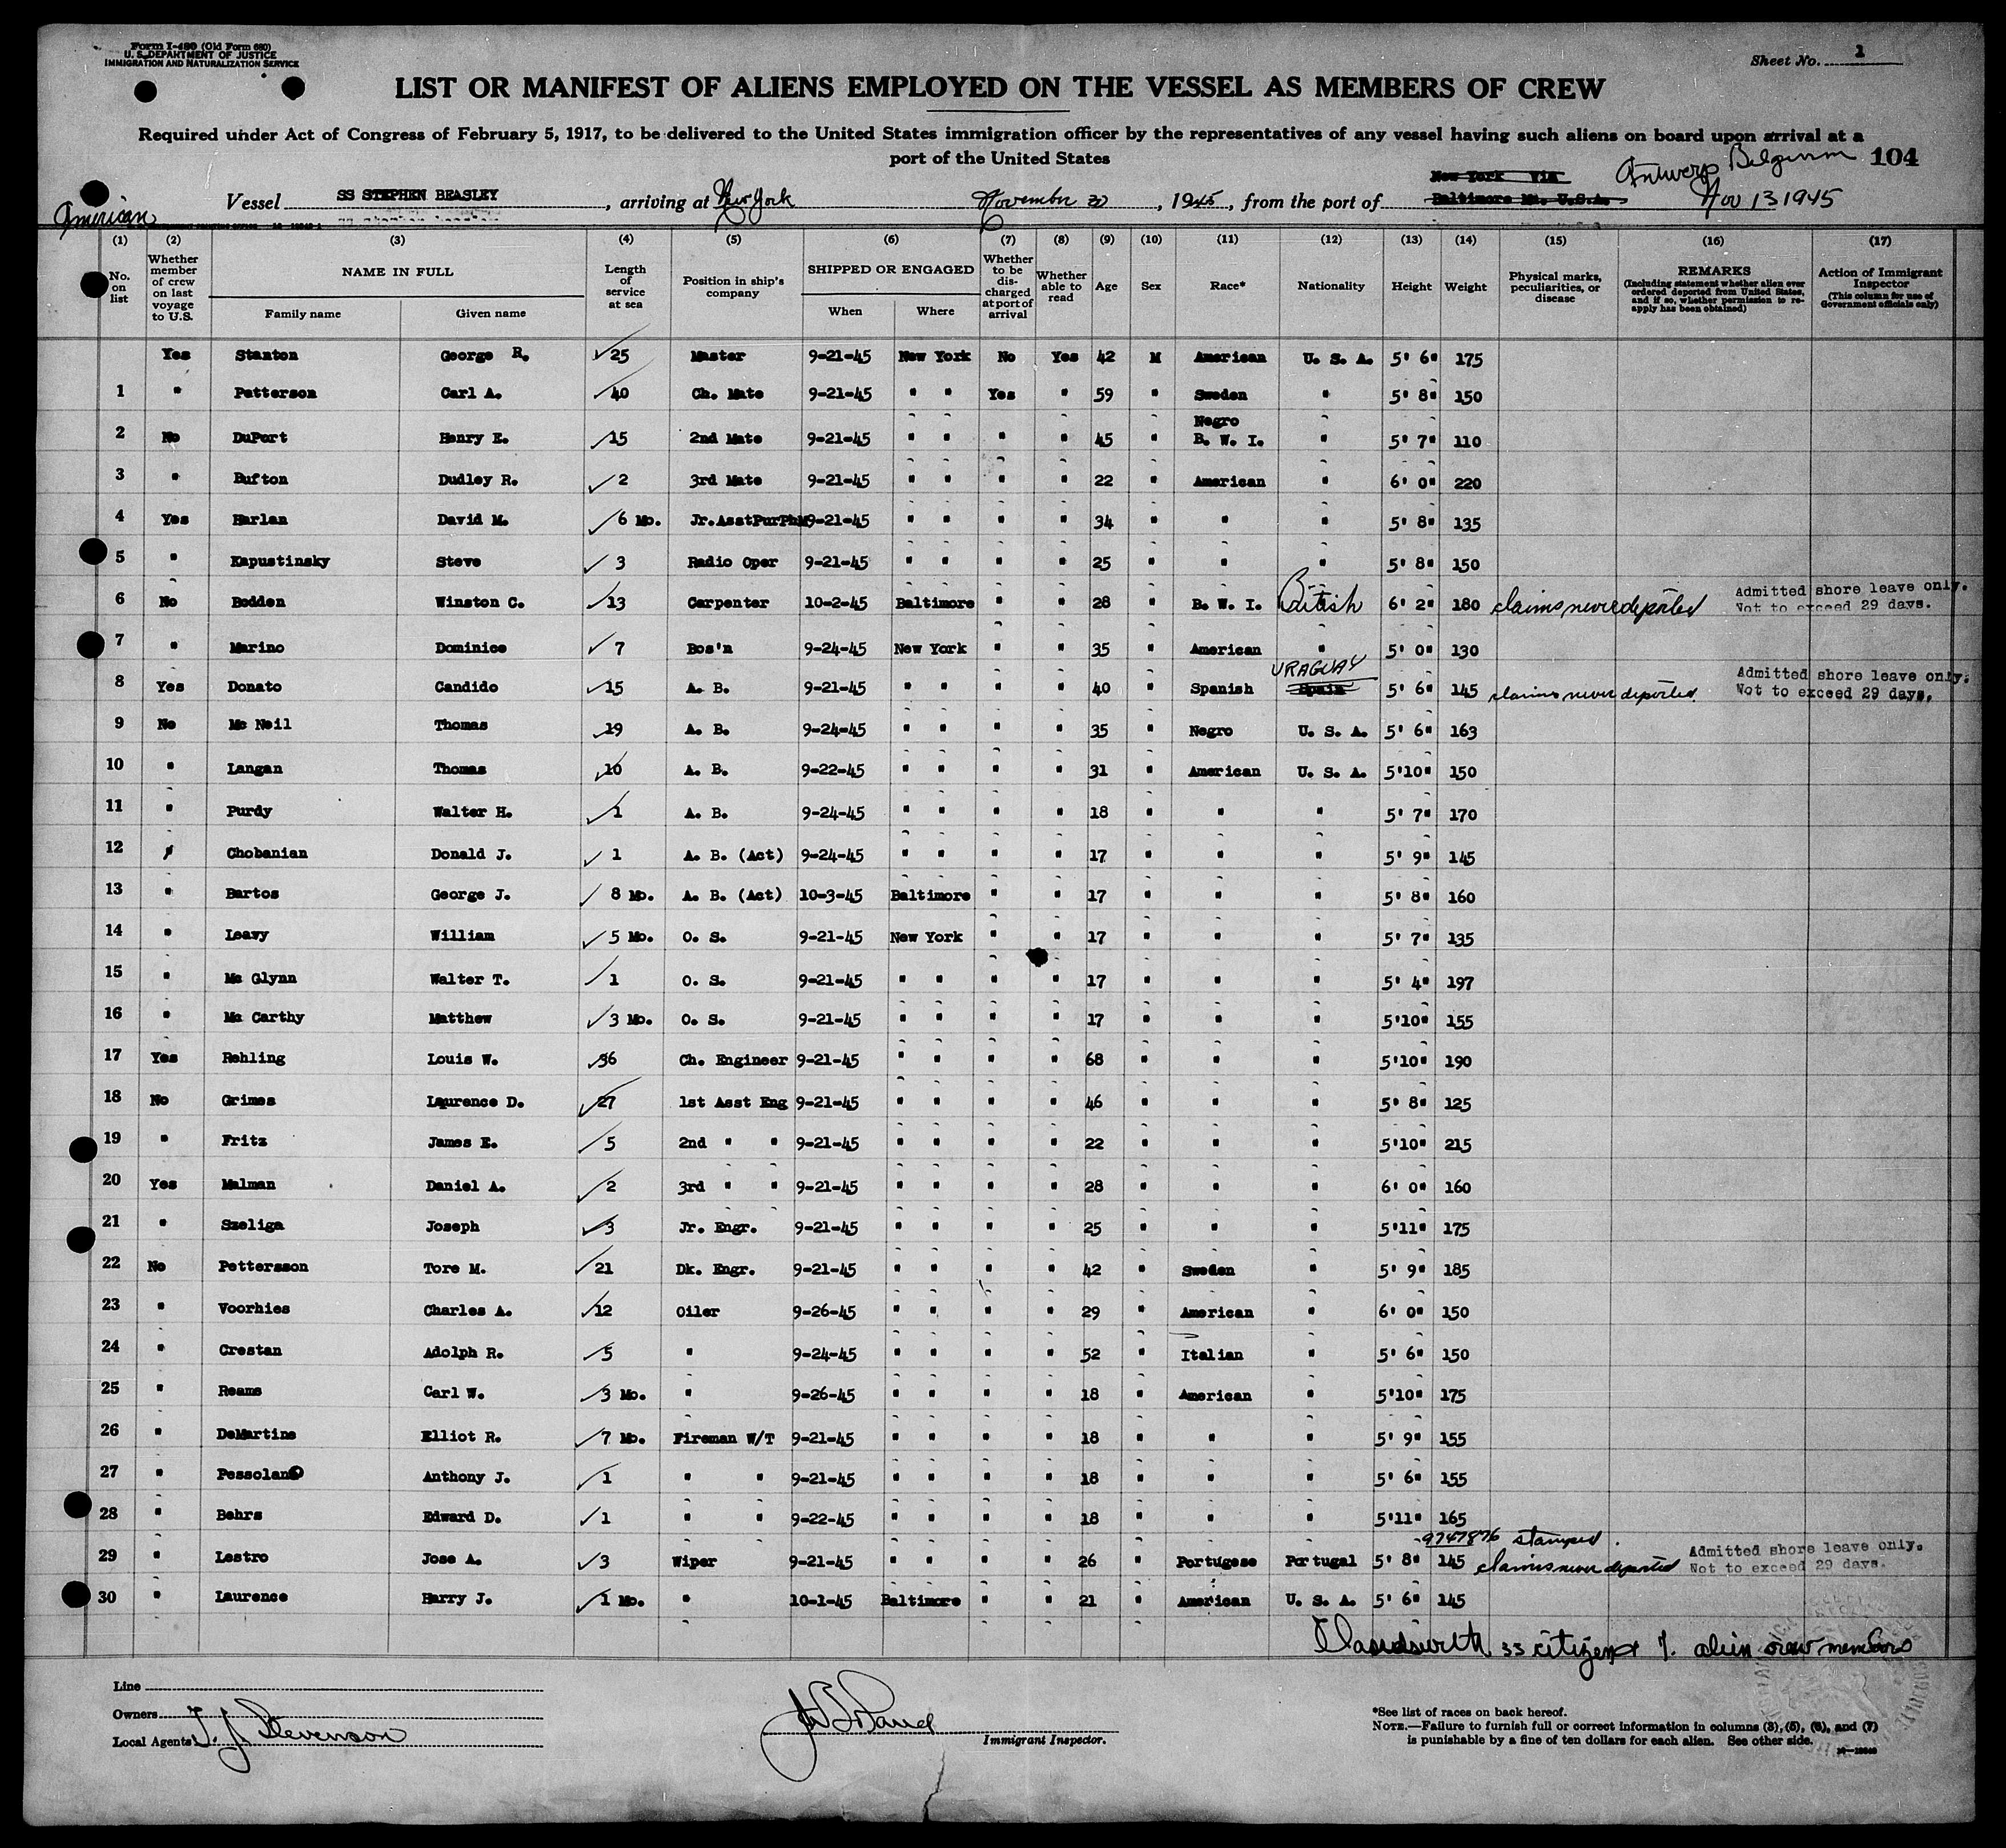 Form I-480 (Old Form 680)
U. S. DEPARTMENT OF JUSTICE
IMMIGRATION AND NATURALIZATION SERVICE
Sheet No. 1
LIST OR MANIFEST OF ALIENS EMPLOYED ON THE VESSEL AS MEMBERS OF CREW
Required under Act of Congress of February 5, 1917, to be delivered to the United States immigration officer by the representatives of any vessel having such aliens on board upon arrival at a
port of the United States
104
American Vessel SS STEPHEN BEASLEY, arriving at New York November 30, 1945, from the port of New York Via Baltimore Md. U.S.A. Antwerp Belgium Nov 13 1945
(1) (2) (3) (4) (5) (6) (7) (8) (9) (10) (11) (12) (13) (14) (15) (16) (17)
No. on list
Whether member of crew on last voyage to U.S.
NAME IN FULL
Family name Given name
Length of service at sea
Position in ship's company
SHIPPED OR ENGAGED
When Where
Whether to be discharged at port of arrival
Whether able to read
Age
Sex
Race*
Nationality
Height
Weight
Physical marks, peculiarities, or disease
REMARKS
(Including statement whether alien ever ordered deported from United States, and if so, whether permission to reapply has been obtained)
Action of Immigrant Inspector
(This column for use of Government officials only)
Yes Stanton George R. 25 Master 9-21-45 New York No Yes 42 M American U. S. A. 5' 6" 175
1 " Patterson Carl A. 40 Ch. Mate 9-21-45 " " Yes " 59 " Sweden " 5' 8" 150
2 No DuPort Henry E. 15 2nd Mate 9-21-45 " " " " 45 " Negro B. W. I. " 5' 7" 110
3 " Bufton Dudley R. 2 3rd Mate 9-21-45 " " " " 22 " American " 6' 0" 220
4 Yes Harlan David M. 6 Mo. Jr.AsstPurPhM 9-21-45 " " " " 34 " " " 5' 8" 135
5 " Kapustinsky Steve 3 Radio Oper 9-21-45 " " " " 25 " " " 5' 8" 150
6 No Bodden Winston C. 13 Carpenter 10-2-45 Baltimore " " 28 " B. W. I. British 6' 2" 180 claims never deported Admitted shore leave only. Not to exceed 29 days.
7 " Marino Dominice 7 Bos'n 9-24-45 New York " " 35 " American " 5' 0" 130
8 Yes Donato Candido 15 A. B. 9-21-45 " " " " 40 " Spanish Spain URAGUAY 5' 6" 145 claims never deported. Admitted shore leave only. Not to exceed 29 days.
9 No Mc Neil Thomas 19 A. B. 9-24-45 " " " " 35 " Negro U. S. A. 5' 6" 163
10 " Langan Thomas 10 A. B. 9-22-45 " " " " 31 " American U. S. A. 5'10" 150
11 " Purdy Walter H. 1 A. B. 9-24-45 " " " " 18 " " " 5' 7" 170
12 " Chobanian Donald J. 1 A. B. (Act) 9-24-45 " " " " 17 " " " 5' 9" 145
13 " Bartos George J. 8 Mo. A. B. (Act) 10-3-45 Baltimore " " 17 " " " 5' 8" 160
14 " Leavy William 5 Mo. O. S. 9-21-45 New York " " 17 " " " 5' 7" 135
15 " Mc Glynn Walter T. 1 O. S. 9-21-45 " " " " 17 " " " 5' 4" 197
16 " Mc Carthy Matthew 3 Mo. O. S. 9-21-45 " " " " 17 " " " 5'10" 155
17 Yes Rehling Louis W. 36 Ch. Engineer 9-21-45 " " " " 68 " " " 5'10" 190
18 No Grimes Laurence D. 27 1st Asst Eng 9-21-45 " " " " 46 " " " 5' 8" 125
19 " Fritz James E. 5 2nd " " 9-21-45 " " " " 22 " " " 5'10" 215
20 Yes Malman Daniel A. 2 3rd " " 9-21-45 " " " " 28 " " " 6' 0" 160
21 " Szeliga Joseph 3 Jr. Engr. 9-21-45 " " " " 25 " " " 5'11" 175
22 No Pettersson Tore M. 21 Dk. Engr. 9-21-45 " " " " 42 " Sweden " 5' 9" 185
23 " Voorhies Charles A. 12 Oiler 9-26-45 " " " " 29 " American " 6' 0" 150
24 " Crestan Adolph R. 5 " 9-24-45 " " " " 52 " Italian " 5' 6" 150
25 " Reams Carl W. 3 Mo. " 9-26-45 " " " " 18 " American " 5'10" 175
26 " DeMartine Elliot R. 7 Mo. Fireman W/T 9-21-45 " " " " 18 " " " 5' 9" 155
27 " Pessolano Anthony J. 1 " " 9-21-45 " " " " 18 " " " 5' 6" 155
28 " Behrs Edward D. 1 " " 9-22-45 " " " " 18 " " " 5'11" 165
9747876 stamped.
29 " Lestro Jose A. 3 Wiper 9-21-45 " " " " 26 " Portugese Portugal 5' 8" 145 claims never deported Admitted shore leave only. Not to exceed 29 days.
30 " Laurence Harry J. 1 Mo. " 10-1-45 Baltimore " " 21 " American U. S. A. 5' 6" 145
33 citizens 7. alien crew members
Line
Owners
Local Agents T. J. Stevenson
Immigrant Inspector.
*See list of races on back hereof.
NOTE.—Failure to furnish full or correct information in columns (3), (5), (6), and (7)
is punishable by a fine of ten dollars for each alien. See other side.